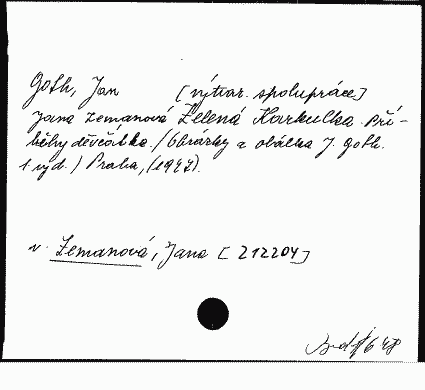 Goth, Jan [výtvar. spolupráce]
Jana Zemanová Zelená Karkulka. Pří-
běhy děvčátka. / Obrázky a obálka J. Goth.
1. vyd.) Praha, (1947).
v. Zemanová, Jana [212204]